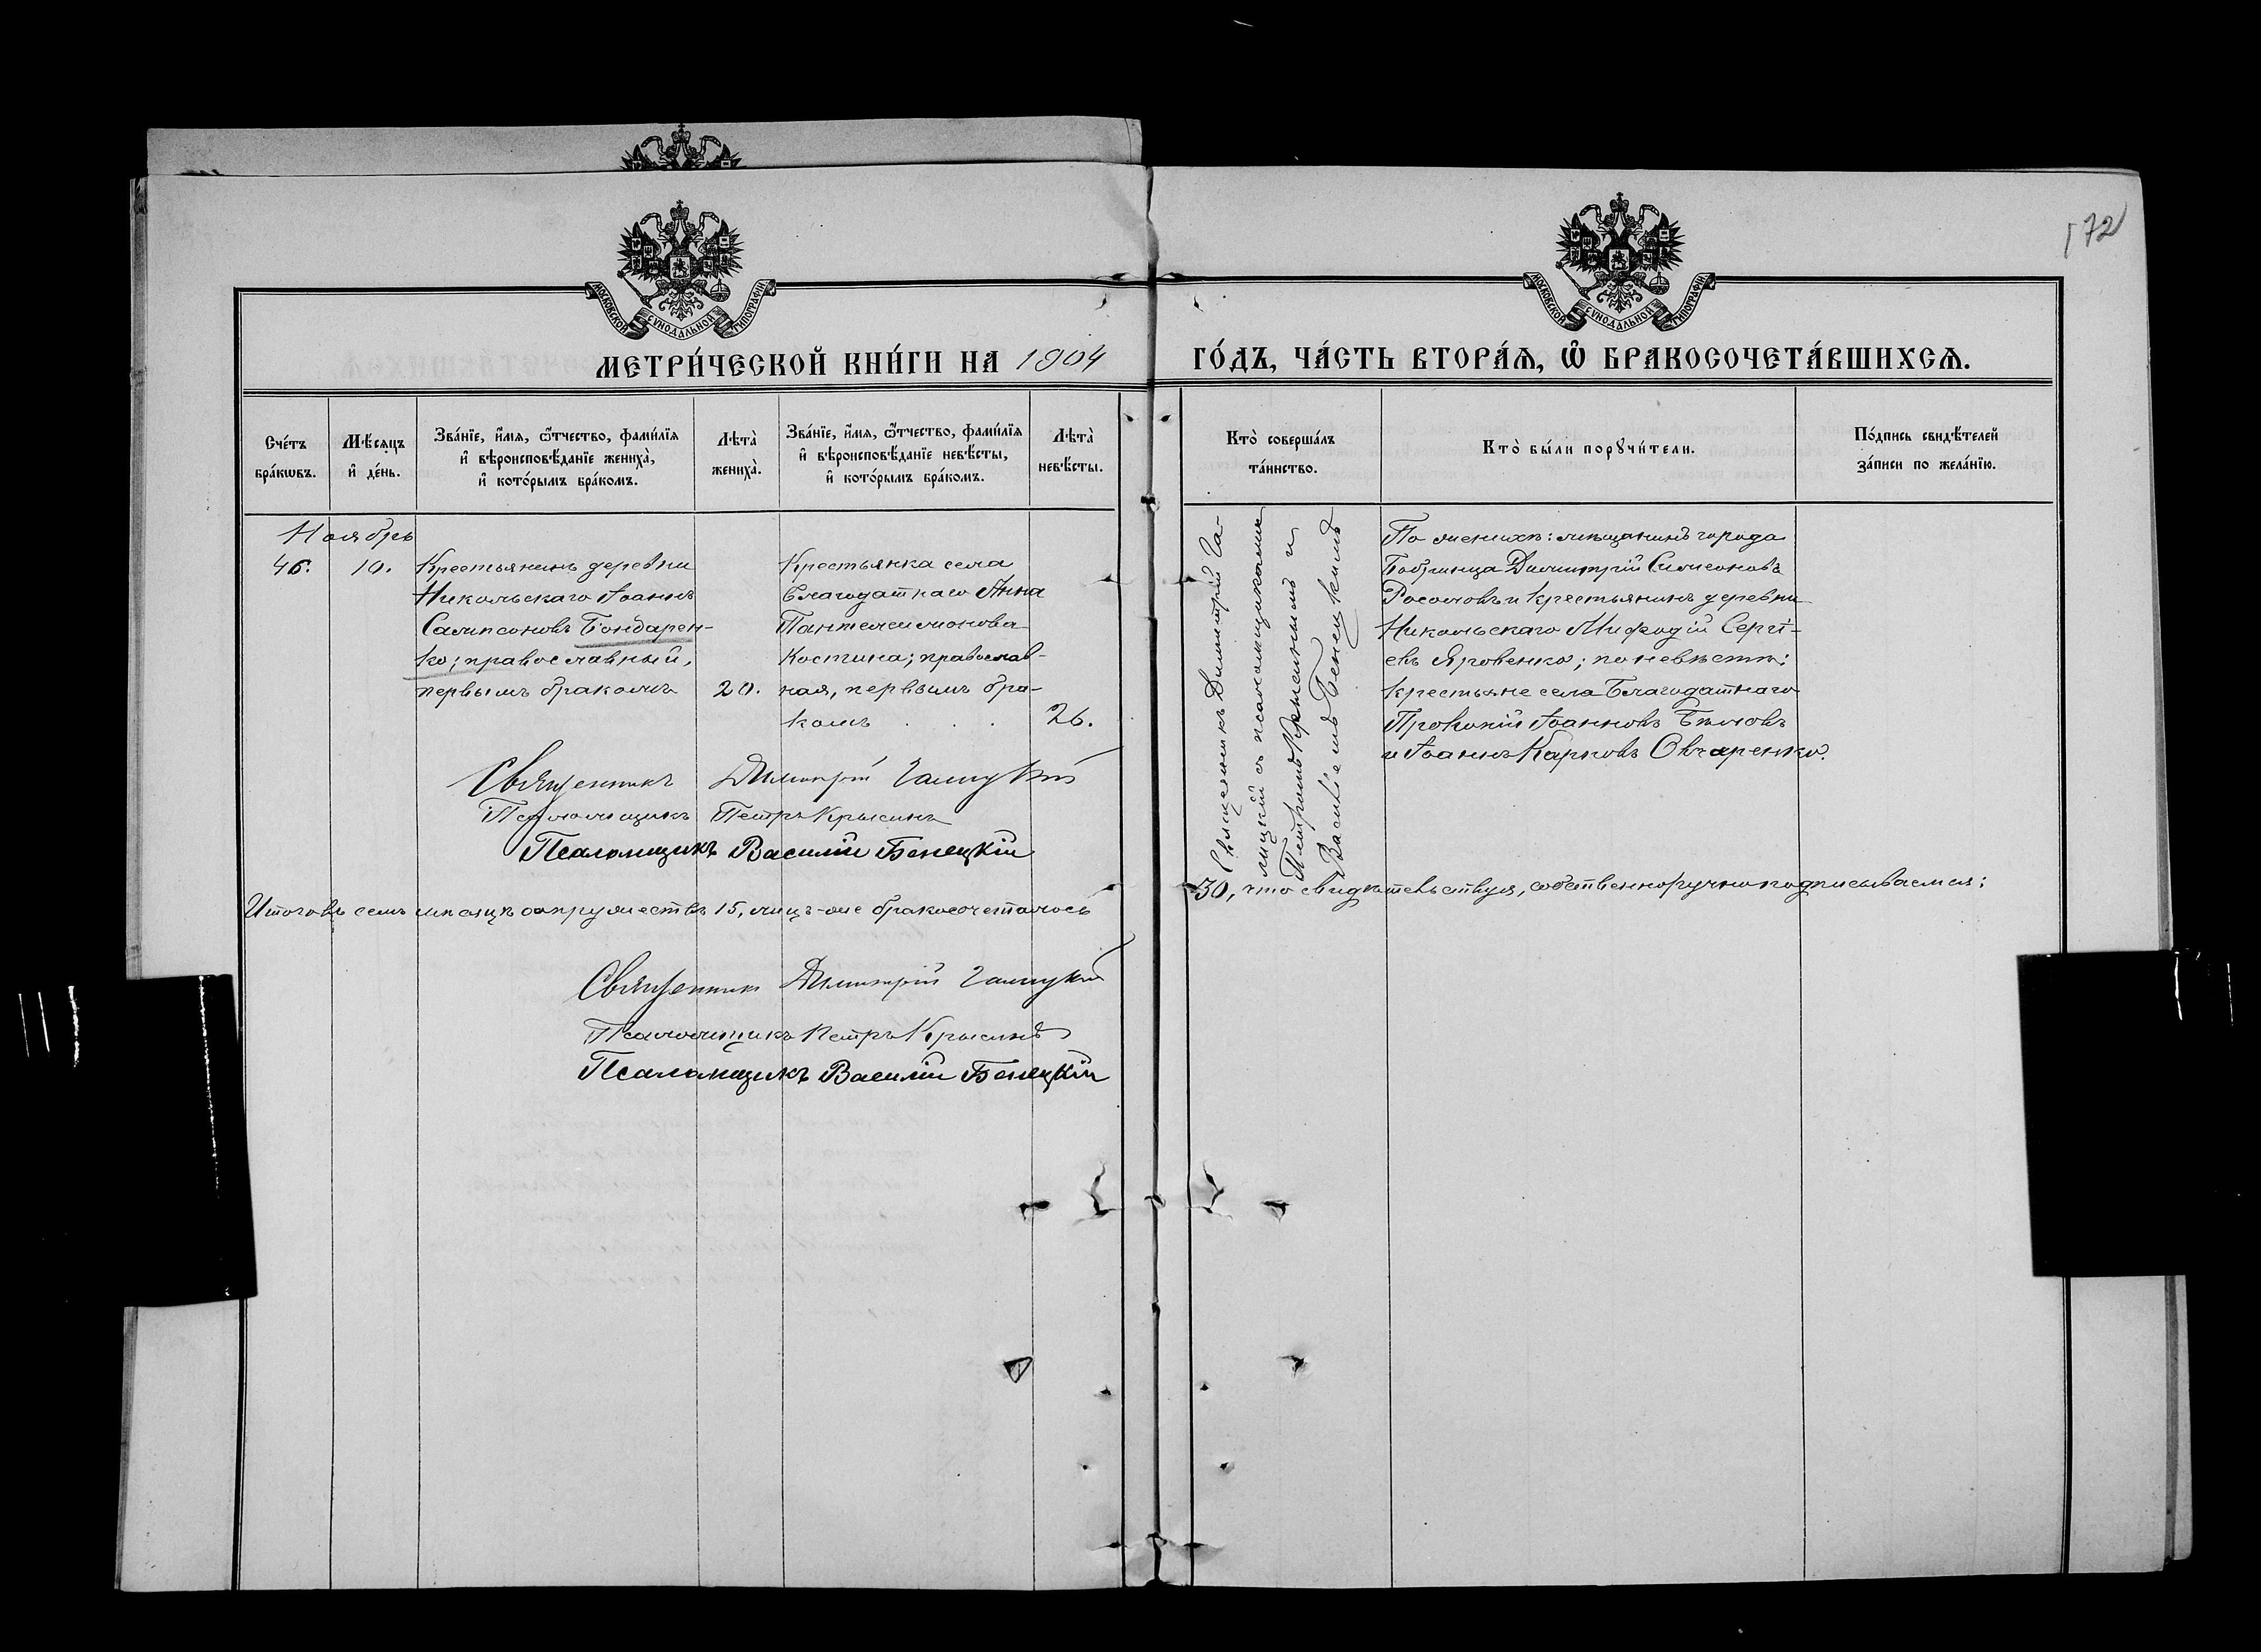 172
МОСКОВСКОЙ СѴНОДАЛЬНОЙ ТИПОГРАФІИ
МОСКОВСКОЙ СѴНОДАЛЬНОЙ ТИПОГРАФІИ
МЕТРИ́ЧЕСКОЙ КНИ́ГИ НА 1904
ГО́ДЪ, ЧА́СТЬ ВТОРА́Ѧ, Ѡ҆ БРАКОСОЧЕТА́ВШИХСѦ.
Сче́тъ
бра́кωвъ.
Мѣ́сѧцъ
и҆ де́нь.
Зва́нїе, и҆́мѧ, ѻ҆́тчество, фами́лїѧ
и҆ вѣроисповѣ́данїе жениха̀,
и҆ кото́рымъ бра́комъ.
Лѣта̀
жениха̀.
Зва́нїе, и҆́мѧ, ѻ҆́тчество, фами́лїѧ
и҆ вѣроисповѣ́данїе невѣ́сты,
и҆ кото́рымъ бра́комъ.
Лѣта̀
невѣ́сты.
Кто̀ соверша́лъ
та́инство.
Кто̀ бы́ли порꙋчи́тели.
По́дпись свидѣ́телей
за́писи по жела́нїю.
Ноябрь
46.
10.
Крестьянинъ деревни
Никольскаго Іоаннъ
Сампсоновъ Бондарен-
ко; православный,
первымъ бракомъ
20.
Крестьянка села
Благодатнаго Анна
Пантелеимонова
Костина; православ-
ная, первымъ бра-
комъ . . .
26.
Священникъ Димитрій Га-
лицкій съ псаломщиками
Петромъ Крысинымъ и
Василіемъ Бенецкимъ
По женихѣ: мѣщанинъ города
Бобринца Димитрій Симоновъ
Росоловъ и крестьянинъ деревни
Никольскаго Мифодій Сергі-
евъ Яровенко; по невѣстѣ:
крестьяне села Благодатнаго
Прокопій Іоанновъ Бѣловъ
и Іоаннъ Карповъ Овчаренко.
Священникъ Димитрій Галицкій
Псаломщикъ Петръ Крысинъ
Псаломщикъ Василій Бенецкій
Итого въ семъ мѣсяцѣ супружествъ 15, лицъ-же бракосочеталось
30, что свидѣтельствуя, собственноручно подписываемся:
Священникъ Димитрій Галицкій
Псаломщикъ Петръ Крысинъ
Псаломщикъ Василій Бенецкій